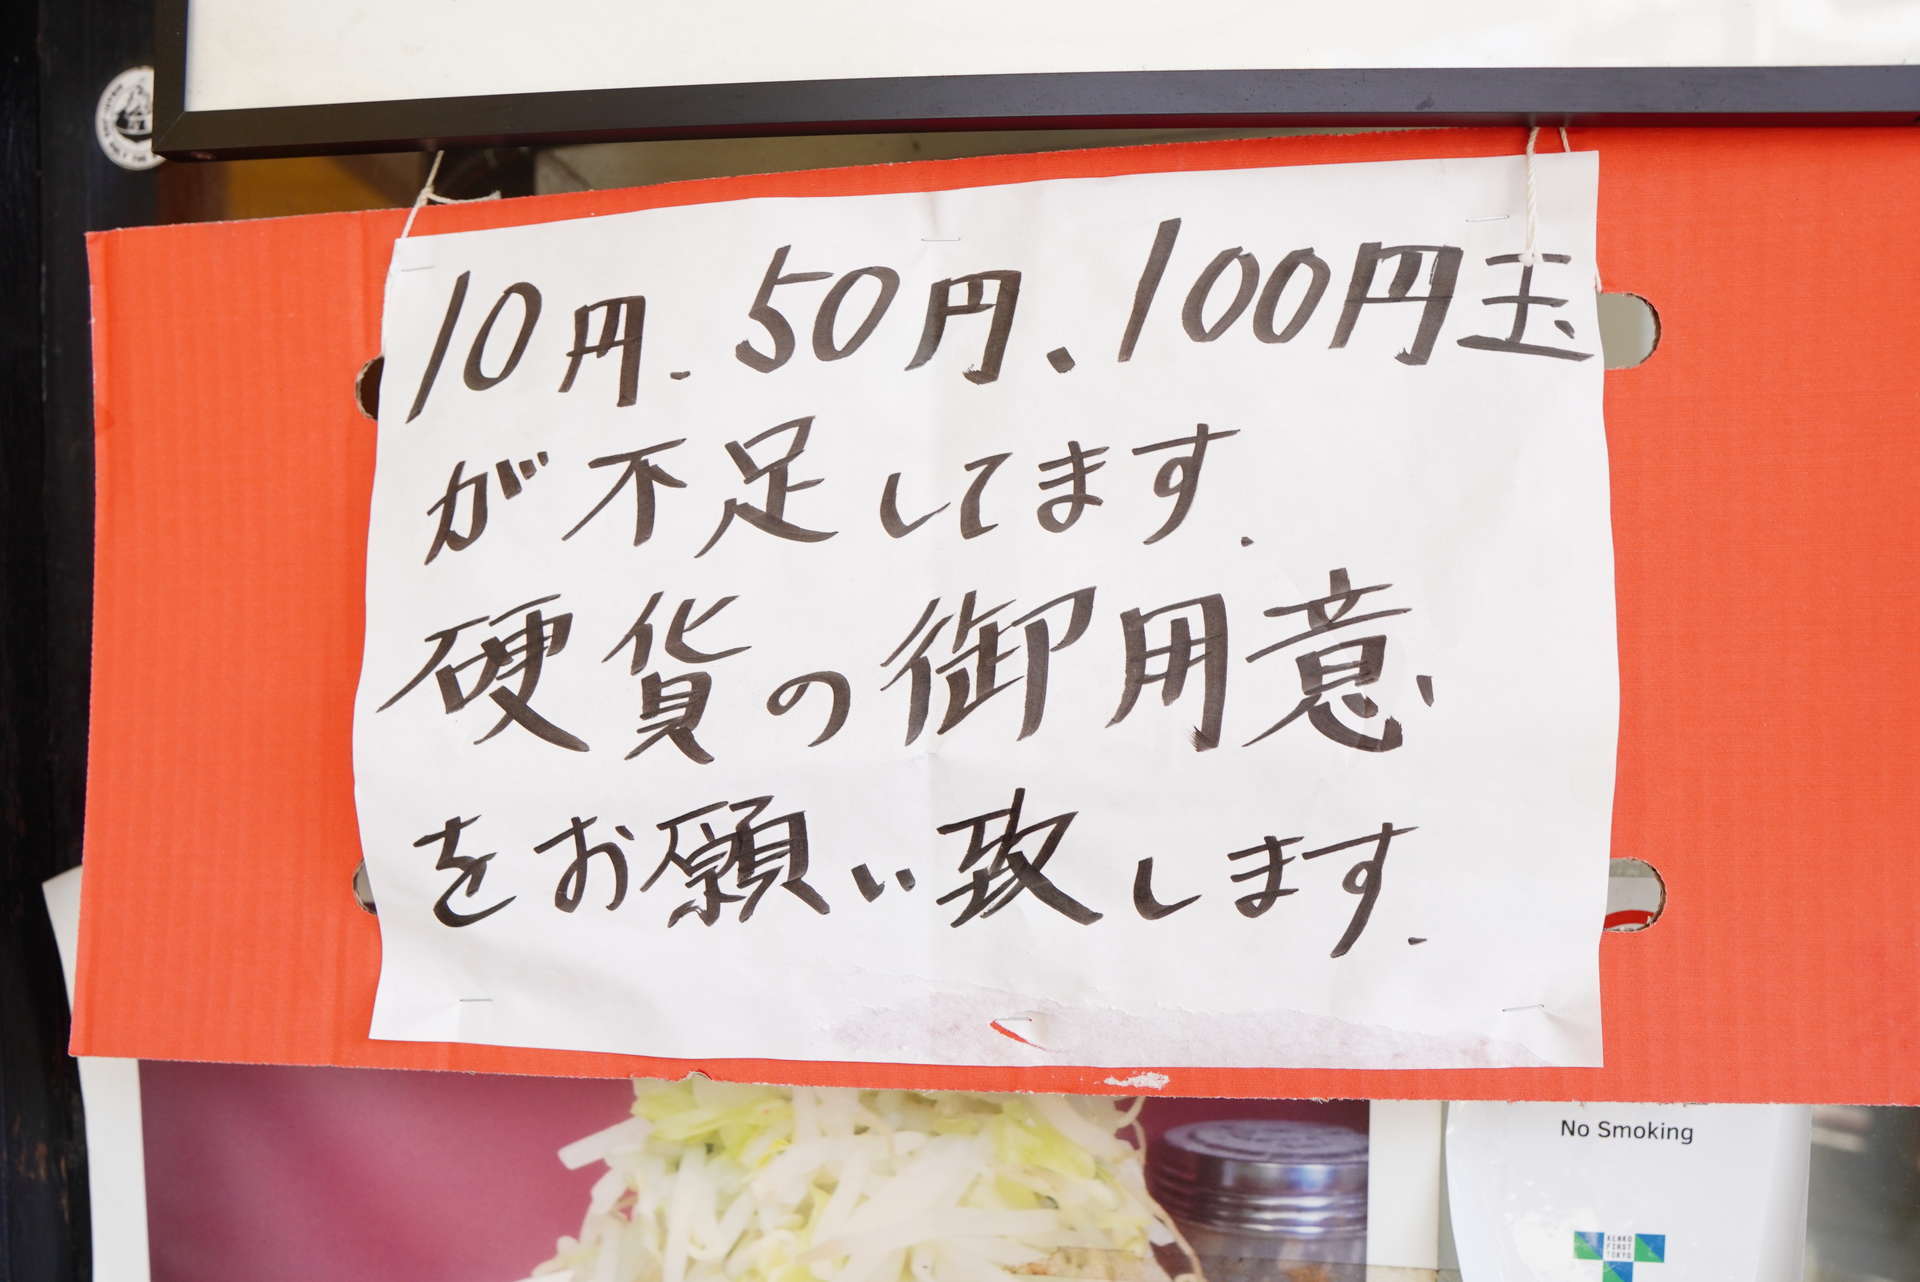 10円、50円、100円玉
が不足してます.
硬貨の御用意
をお願い致します.
No Smoking
KENKO
FIRST
TOKYO